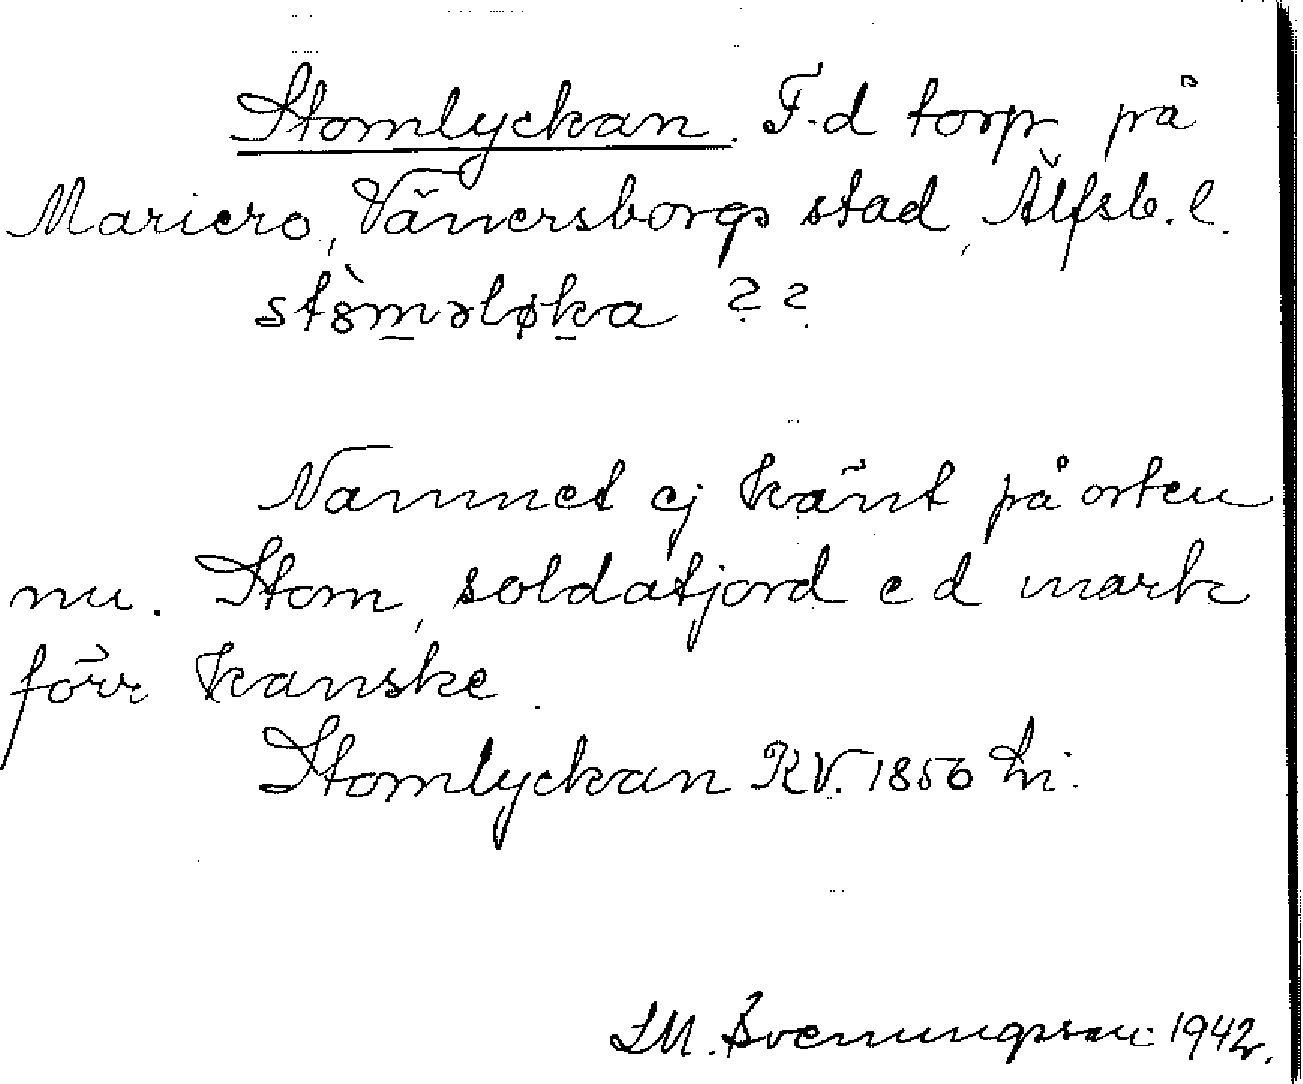 Stomlyckan. F.d torp på
Mariero, Vänersborgs stad, Älfsb. l.
stòmələka ??
Namnet ej känt på orten
nu. Stom, soldatjord e d mark
förr kanske.
Stomlyckan KV. 1856 hi.
J.M. Svenungsson 1942.